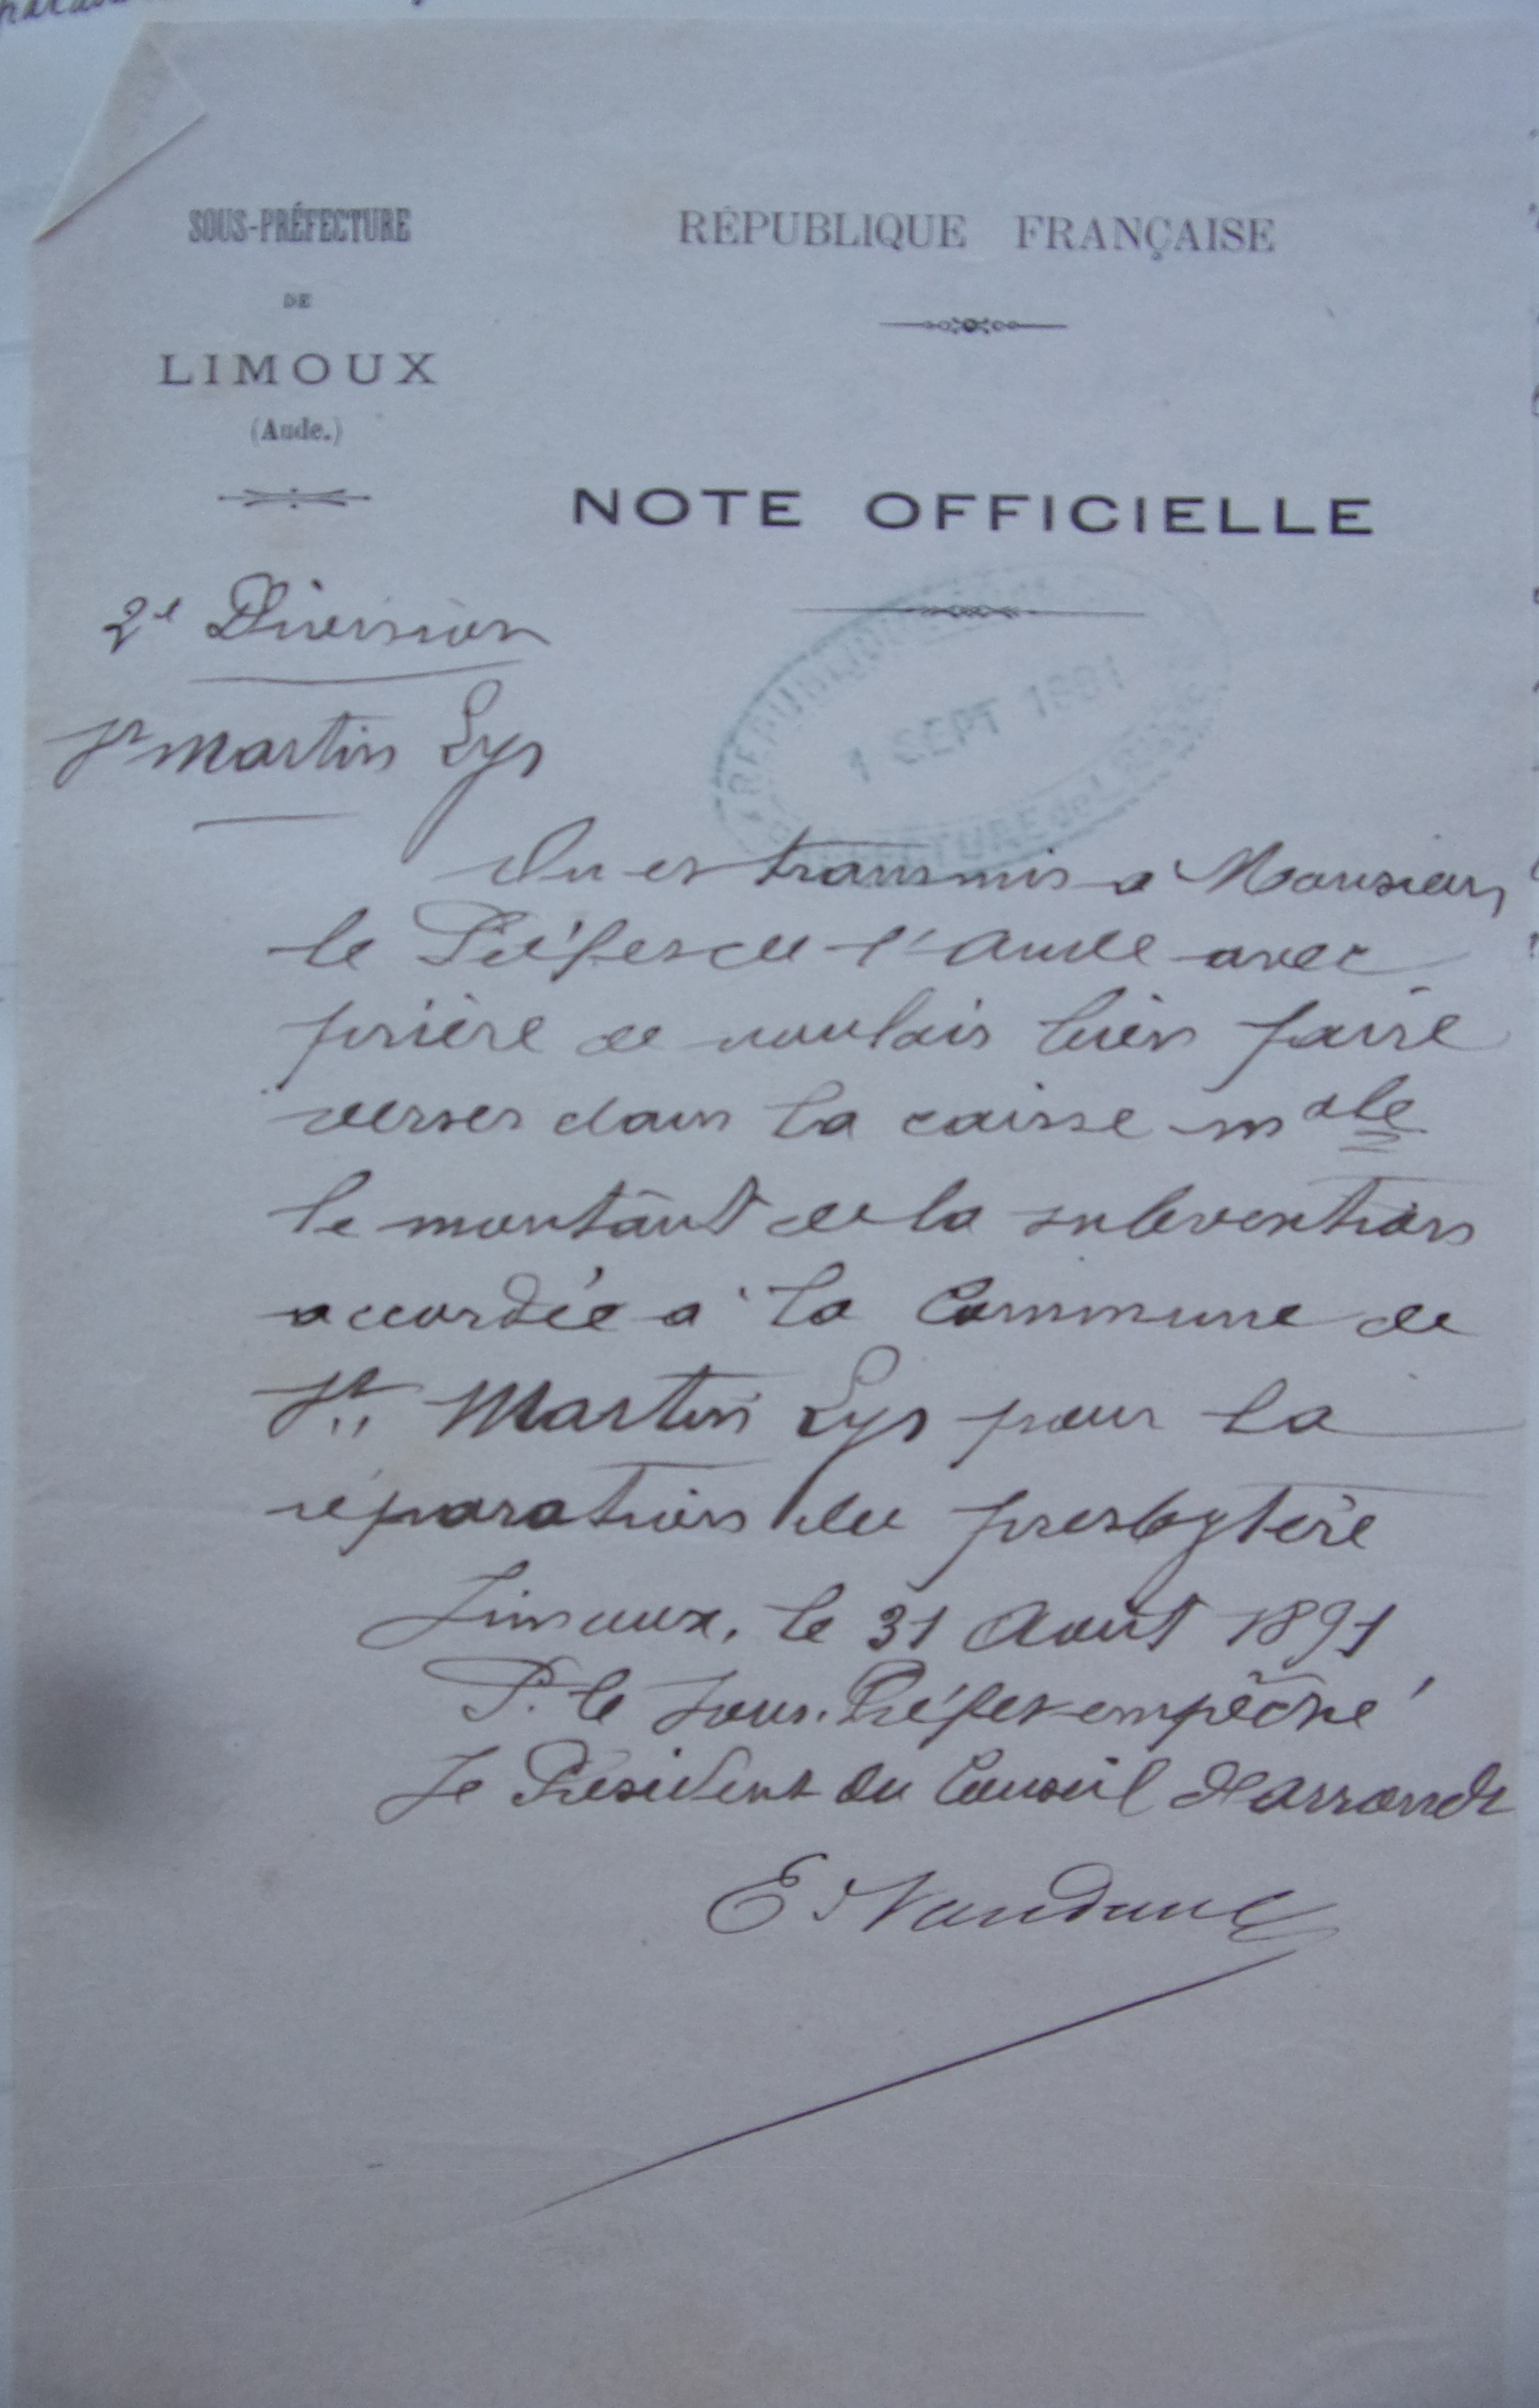 SOUS-PRÉFECTURE
DE
LIMOUX
(Aude.)
RÉPUBLIQUE FRANÇAISE
NOTE OFFICIELLE
2e Division
St Martin Lys
1 SEPT 1891
Vu et transmis à Monsieur
le Préfet de l'Aude avec
prière de vouloir bien faire
verser dans la caisse male
le montant de la subvention
accordée à la Commune de
St Martin Lys pour la
réparation du presbytère
Limoux, le 31 Août 1891
P. le Sous-Préfet empêché
Le Président du Conseil d'arrondt